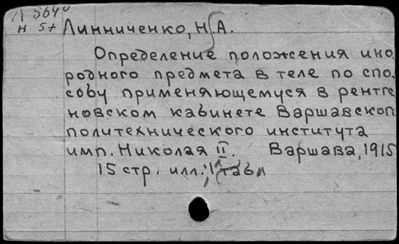 Л 564
Н 54
Линниченко, Н.А.
Определение положения ино-
родного предмета в теле по спо-
собу применяющемуся в рентге-
новском кабинете Варшавского
политехнического института
имп. Николая II. Варшава, 1915
15 стр. илл. 1 табл